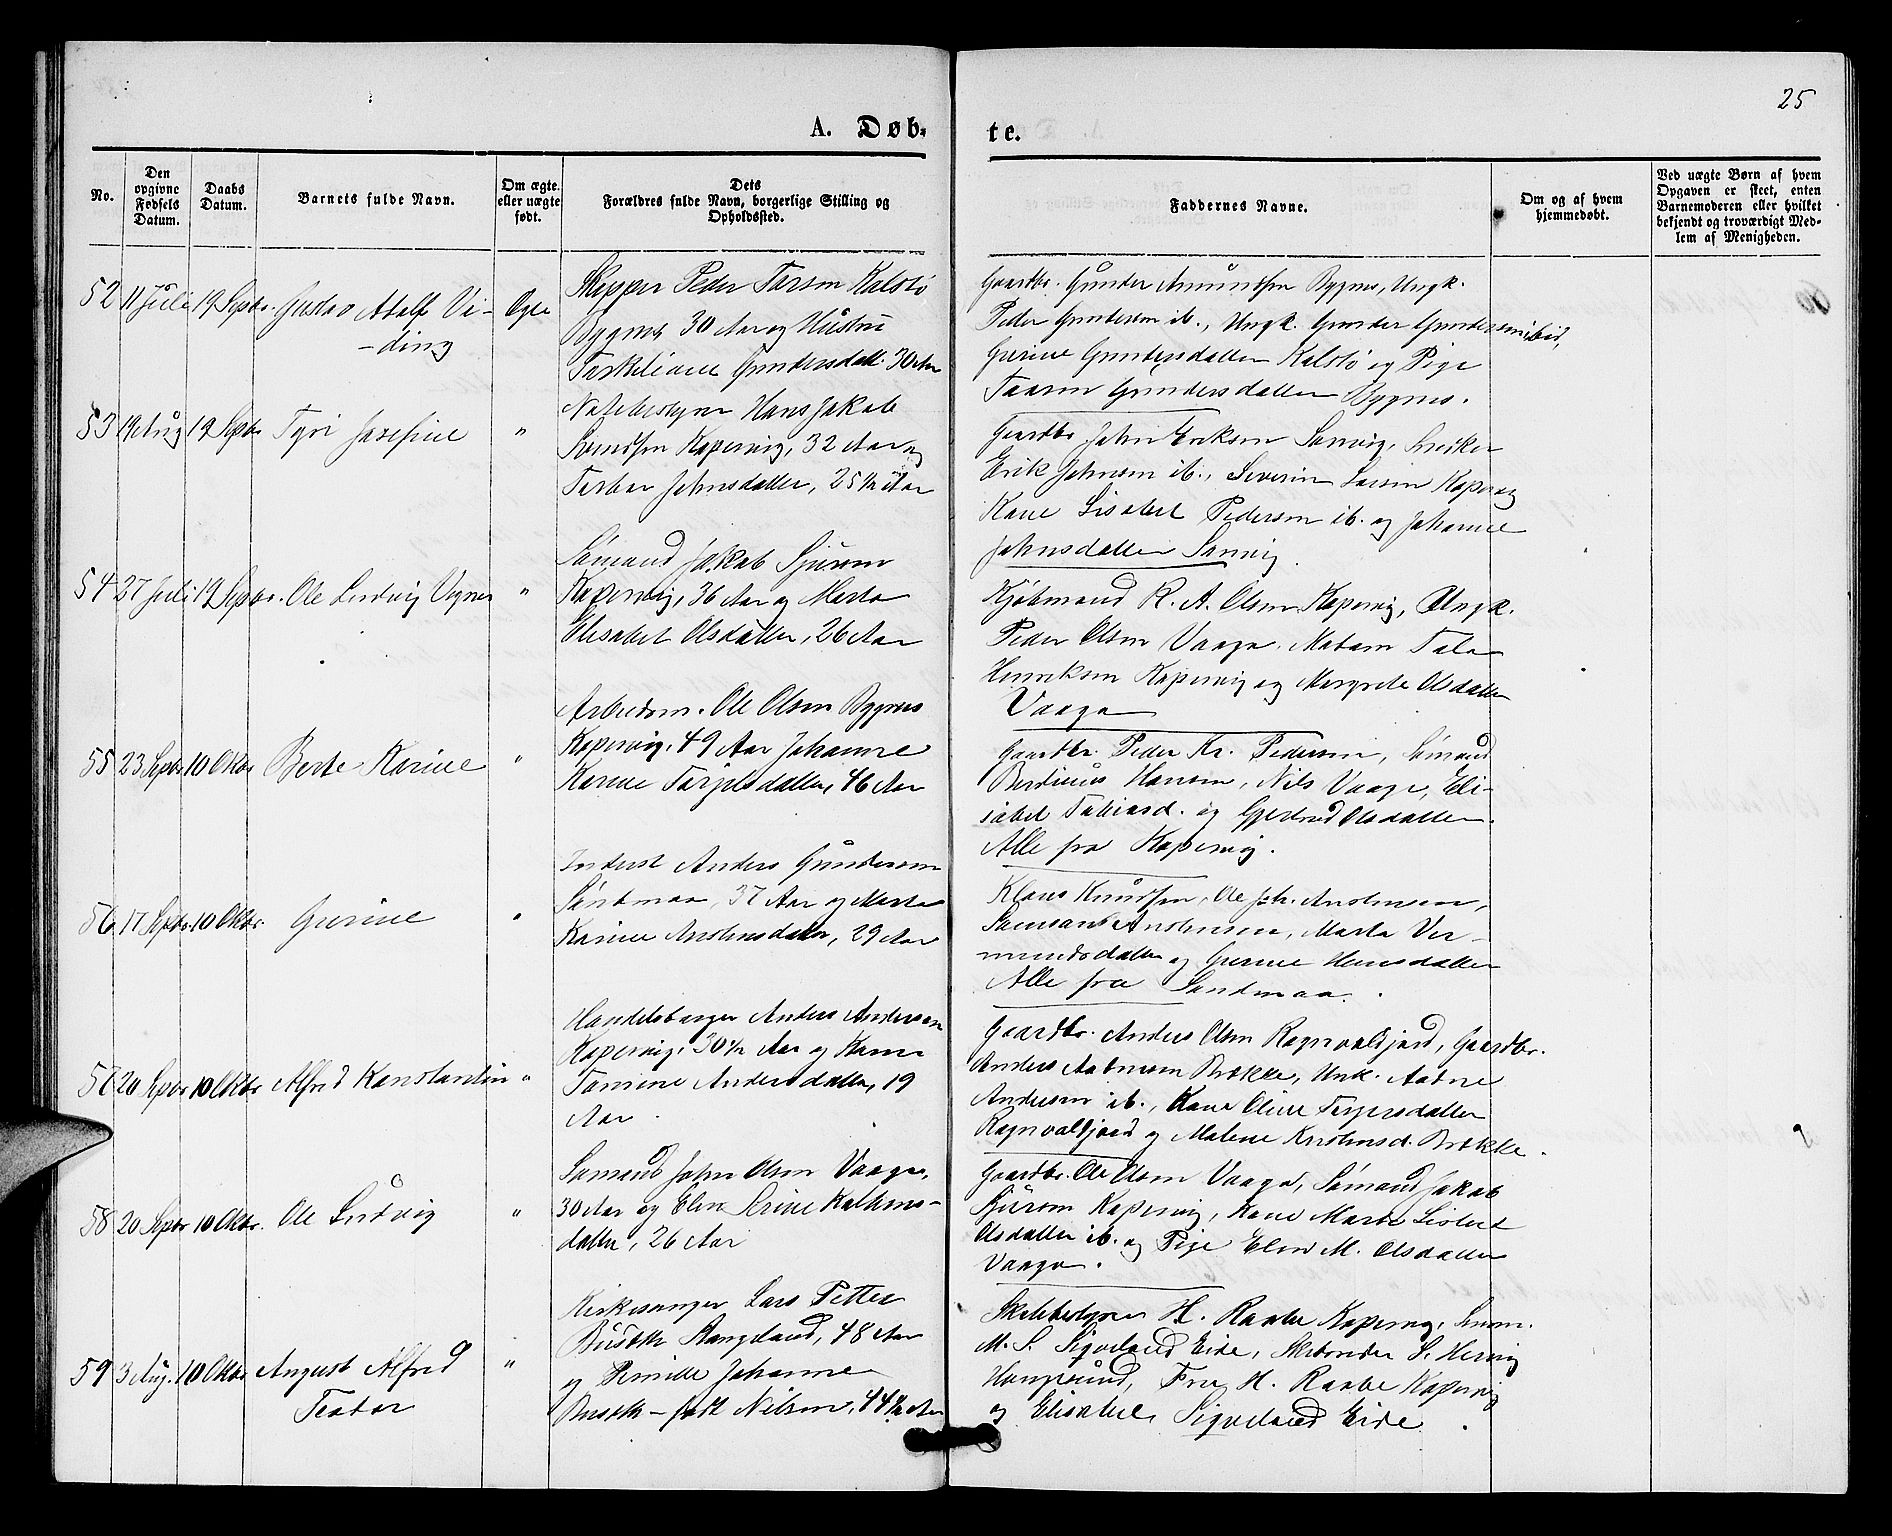 25
A. Døb- te.
No.
Den opgivne Fødsels Datum.
Daabs Datum.
Barnets fulde Navn.
Om ægte eller uægte født.
Dets Forældres fulde Navn, borgerlige Stilling og Opholdssted.
Faddernes Navne.
Om og af hvem hjemmedøbt.
Ved uægte Børn af hvem Opgaven er skeet, enten Barnemoderen eller hvilket bekjendt og troværdigt Medlem af Menigheden.
52 11 Juli 19 Septbr. Gustav Adolf Vi-
-ding
Ægte
Skipper Peder Larsen Kalstø
Bygnes 30 Aar og Hustru
Torkeliane Gundersdatt. 30 Aar
Gaardbr. Gunder Amundsen Bygnes, Ungk.
Peder Gundersen ib., Ungk. Gunder Gundersen ibid,
Gurine Gundersdatter Kalstø og Pige
Taaran Gundersdatter Bygnes.
53 19 Aug 19 Septbr Tyri Josefine "
Hans Jakob
Svendsen Kopervig, 32 Aar og
Torbor Johnsdatter, 25 ½ Aar
Gaardbr John Eriksen Sanvig, Snedker
Erik Johnsen ib., Severin Larsen Kopervig
Kone Lisabet Pedersen ib. og Johanne
Johnsdatter Sanvig.
54 27 Juli 19 Septbr. Ole Ludvig Vegner "
Sømand Jakob Sjursen
Kopervig, 36 Aar og Marta
Elisabet Olsdatter, 26 Aar
Kjøbmand R. A. Olsen Kopervig, Ungk.
Peder Olsen Vaage, Madam Tala
Henriksen Kopervig og Margrete Olsdatter
Vaage
55 23 Septbr 10 Oktbr Berte Karine "
Arbeidsm. Ole Olsen Bygnes
Kopervig, 49 Aar Johanne
Karine Torgilsdatter, 46 Aar
Gaardbr. Peder Kr. Pedersen, Sømand
Berdinius Hansen, Nils Vaage, Eli-
sabet Tobiasd. og Gjertrud Olsdatter.
Alle fra Kopervig.
56 17 Septbr. 10 Oktbr. Gurine "
Inderst Anders Gundersen
37 Aar og Marta
Karine Anstensdatter, 29 Aar
Klaus Knudsen, Ole Joh. Anstensen,
Samson Anstensen, Marta Ver-
mundsdatter og Gurine Hansdatter
Alle fra
57 20 Septbr 10 Oktbr Alfred Konstantin "
Handelsborger Anders Andersen
Kopervig, 30 ½ Aar og Kone
Tomine Andersdatter, 19
Aar.
Gaardbr. Anders Olsen Ragnvaldjord, Gaardbr.
Anders Aadnesen Brække, Unk. Aadne
Andersen ib., Kone Oline Torgersdatter
Ragnvaldjord og Malene Knutensd. Brække.
58 20 Septbr 10 Oktbr. Ole Ludvig "
Sømand John Olsen Vaage,
30 Aar og Elen Serine Kolbens-
datter, 26 Aar
Gaardbr. Ole Olsen Vaage, Sømand Jakob
Sjursen Kopervig, Kone Marta Lisbet
Olsdatter ib. og Pige Elen M. Olsdatter
Vaage.
59 3 Aug. 10 Oktbr August Alfred
Teodor
"
Kirkesanger Lars Petter
Stangeland, 48 Aar
og Pernille Johanne
født Nilsen, 44 ½ Aar
Skolebestyrer H. Raabe Kopervig,
M. S. Sigveland Eide, S. Hervig
Haugesund, Fru H. Raabe Kopervig
og Elisabet Sigveland Eide.